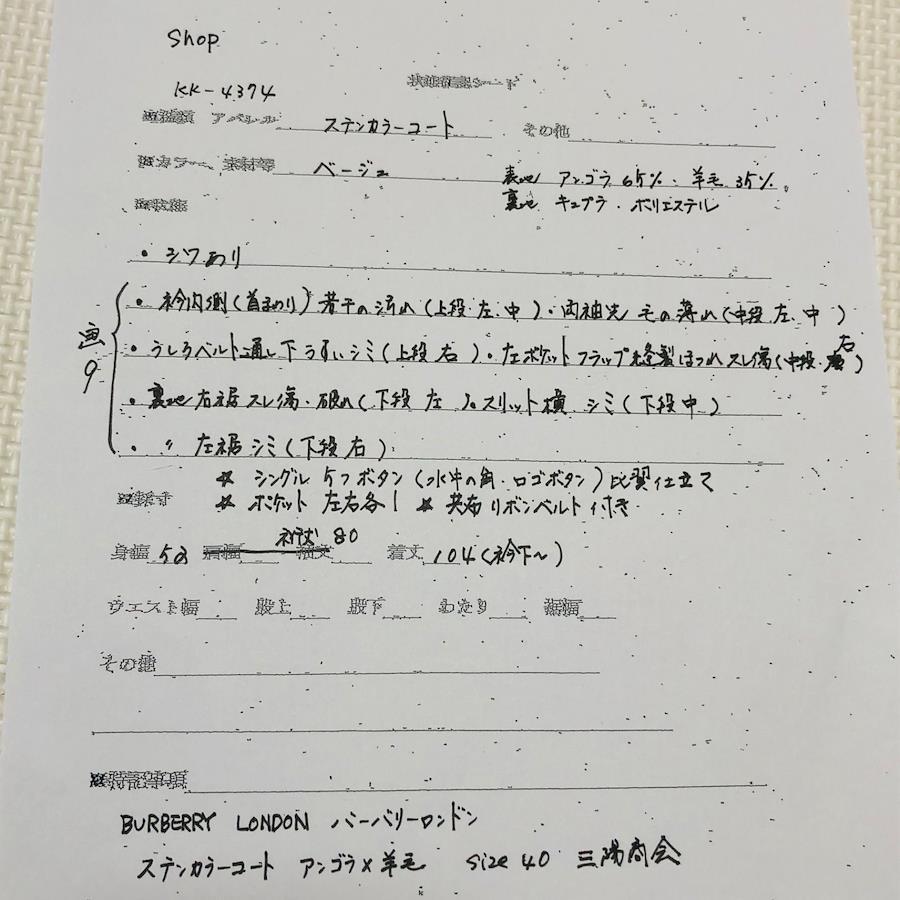 Shop
KK-4374
状態確認シート
アパレル ステンカラーコート その他
カラー、素材等 ベージュ 表地 アンゴラ 65%・羊毛 35%。
裏地 キュプラ・ポリエステル
状態
・シワあり
・衿内側(首まわり)若干の汚れ(上段 左、中)・両袖先 毛の薄れ(中段 左、中)
画9
・うしろベルト通し下 うすいシミ(上段 右)・左ポケットフラップ縫製ほつれ スレ傷(中段・右)
・裏地 右裾スレ傷・破れ(下段 左)。スリット横 シミ(下段 中)
・〃 左裾シミ(下段 右)
* シングル 5つボタン(水牛の角・ロゴボタン)比翼仕立て
採寸 * ポケット 左右各1 * 共布リボンベルト付き
身幅 58 裄丈 80 着丈 104(衿下~)
ウエスト幅 股上 股下 わたり 裾幅
その他
特記事項
BURBERRY LONDON バーバリーロンドン
ステンカラーコート アンゴラ×羊毛 size 40 三陽商会